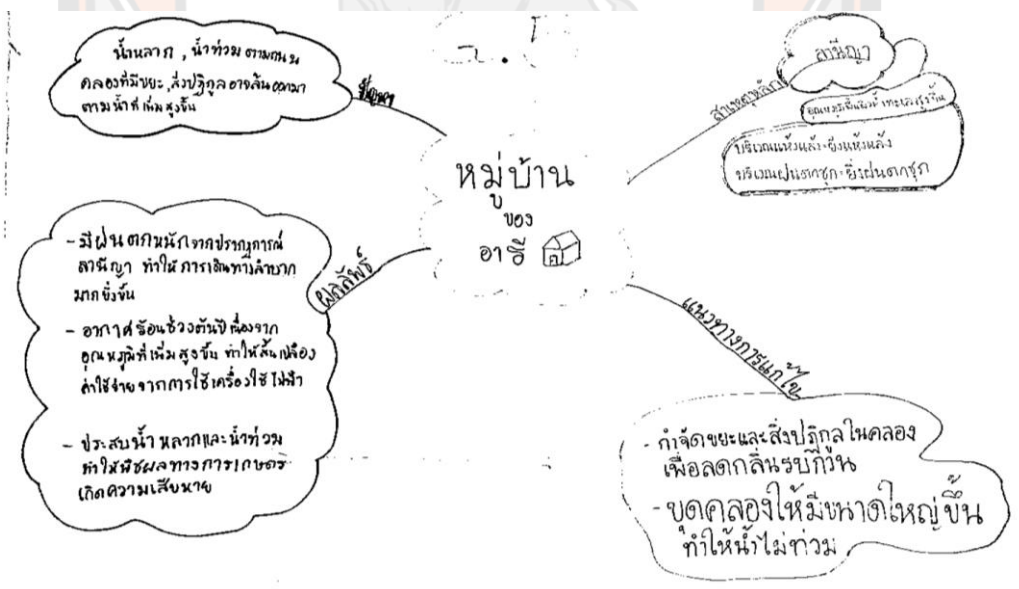 น้ำหลาก , น้ำท่วม ตามถนน
คลองที่มีขยะ, สิ่งปฏิกูล อาจล้นออกมา
ตามน้ำที่เพิ่มสูงขึ้น
ปัญหา
หมู่บ้าน
ของ
อารี
สาเหตุหลัก
ลานีญา
อุณหภูมิผิวน้ำทะเลสูงขึ้น
บริเวณแห้งแล้ง-ยิ่งแห้งแล้ง
บริเวณฝนตกชุก-ยิ่งฝนตกชุก
ผลลัพธ์
- มีฝนตกหนักจากปรากฏการณ์
ลานีญา ทำให้การเดินทางลำบาก
มากยิ่งขึ้น
- อากาศร้อนช่วงต้นปีเนื่องจาก
อุณหภูมิที่เพิ่มสูงขึ้น ทำให้สิ้นเปลือง
ค่าใช้จ่ายจากการใช้เครื่องใช้ไฟฟ้า
- ประสบน้ำหลากและน้ำท่วม
ทำให้พืชผลทางการเกษตร
เกิดความเสียหาย
แนวทางการแก้ไข
- กำจัดขยะและสิ่งปฏิกูลในคลอง
เพื่อลดกลิ่นรบกวน
- ขุดคลองให้มีขนาดใหญ่ขึ้น
ทำให้น้ำไม่ท่วม